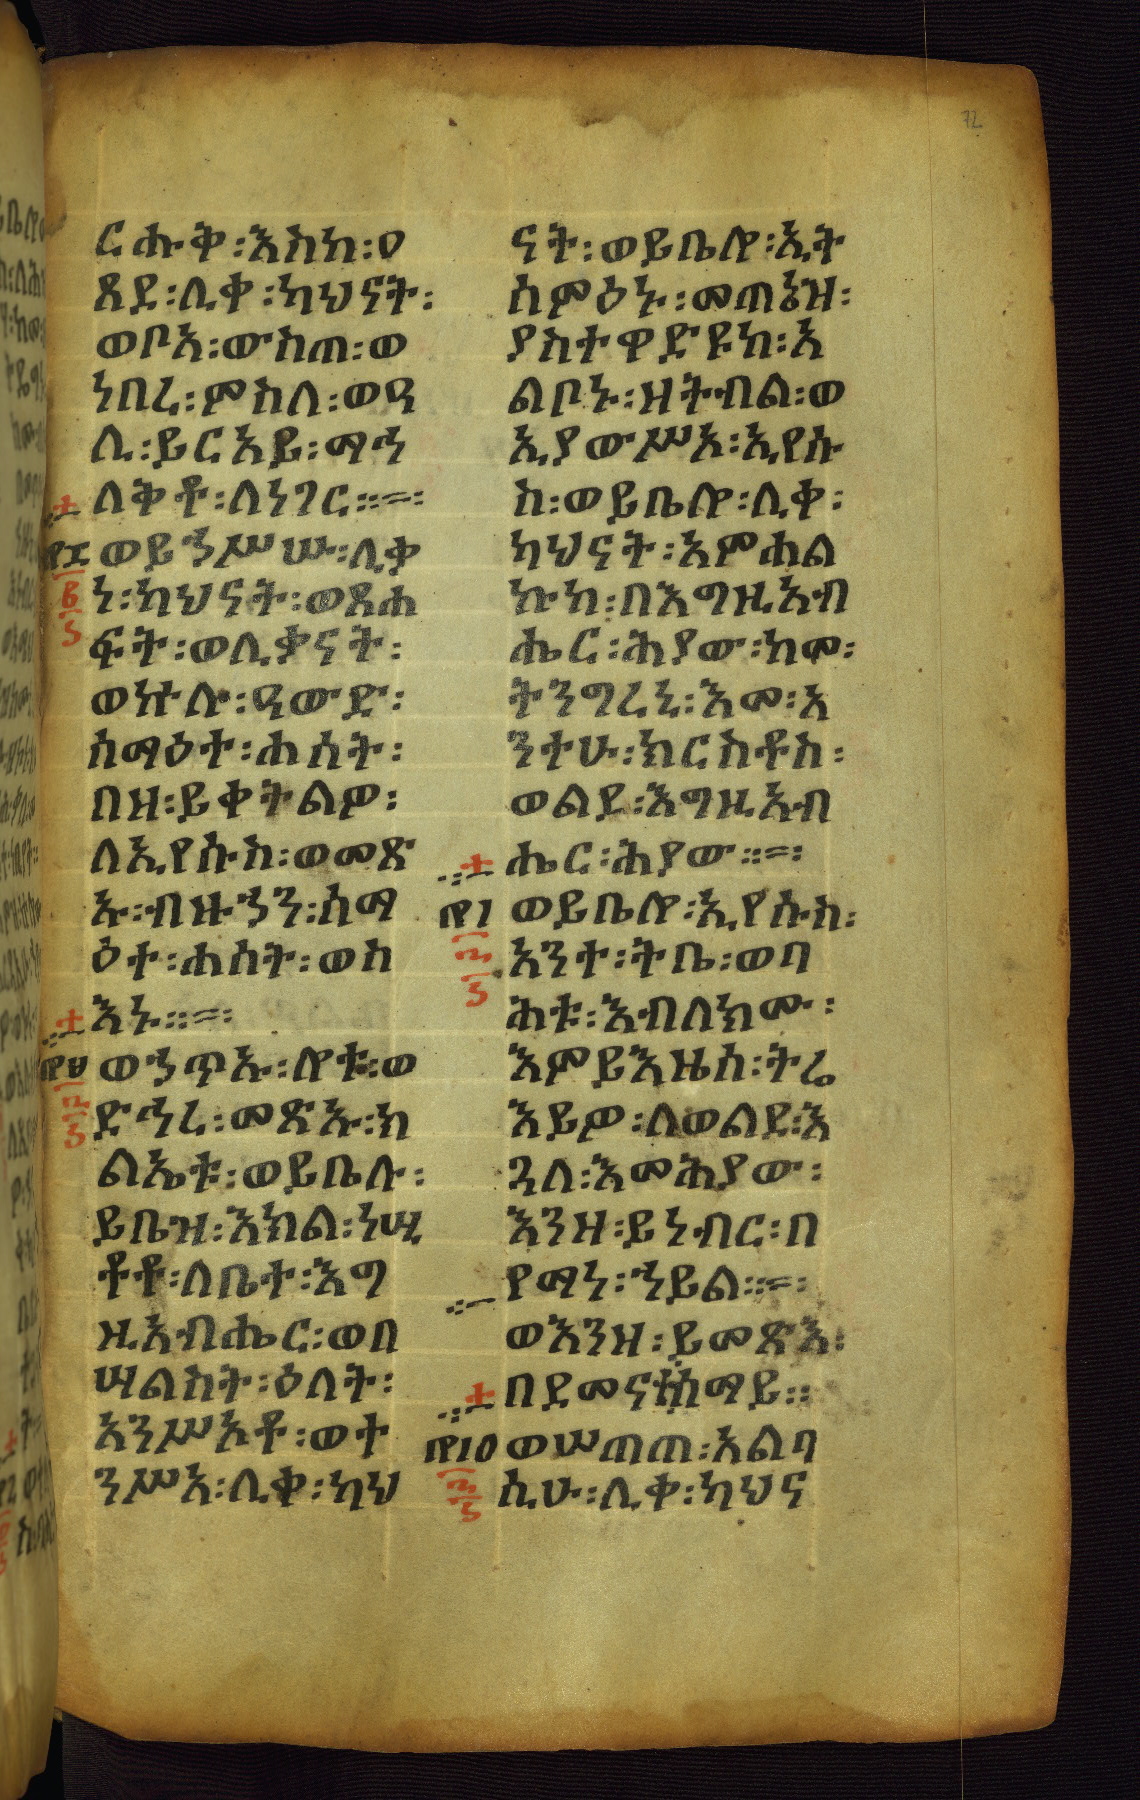 72
ርሑቅ፡እስከ፡ዐ
ጸደ፡ሊቀ፡ካህናት፡
ወቦአ፡ውስጠ፡ወ
ነበረ፡ምስለ፡ወዓ
ሊ፡ይርአይ፡ማኅ
ለቅቶ፡ለነገር።=፡
ወይኅሥሡ፡ሊቃ
ነ፡ካህናት፡ወጸሐ
ፍት፡ወሊቃናት፡
ወኵሉ፡ዓውድ፡
ሰማዕተ፡ሐሰት፡
በዘ፡ይቀትልዎ፡
ለኢየሱስ፡ወመጽ
ኡ፡ብዙኃን፡ሰማ
ዕተ፡ሐሰት፡ወስ
እኑ።=፡
ወኃጥኡ፡ሎቱ፡ወ
ድኅረ፡መጽኡ፡ክ
ልኤቱ፡ወይቤሉ፡
ይቤዝ፡እክል፡ነሢ
ቶቶ፡ለቤተ፡እግ
ዚአብሔር፡ወበ
ሣልስት፡ዕለት፡
አንሥኦቶ፡ወተ
ንሥአ፡ሊቀ፡ካህ
ናት፡ወይቤሎ፡ኢት
ሰምዕኑ፡መጠነዝ፡
ያስተዋድዩከ፡አ
ልቦኑ፡ዘትብል፡ወ
ኢያውሥአ፡ኢየሱ
ስ፡ወይቤሎ፡ሊቀ፡
ካህናት፡አምሐል
ኩከ፡በእግዚአብ
ሔር፡ሕያው፡ከመ፡
ትንግረኒ፡እመ፡አ
ንተሁ፡ክርስቶስ፡
ወልደ፡እግዚአብ
ሔር፡ሕያው።=፡
ወይቤሎ፡ኢየሱስ፡
አንተ፡ትቤ፡ወባ
ሕቱ፡እብለክሙ፡
እምይእዜሰ፡ትሬ
እይዎ፡ለወልደ፡እ
ጓለ፡እመሕያው፡
እንዘ፡ይነብር፡በ
የማነ፡ኀይል።=፡
ወእንዘ፡ይመጽእ፡
በደመናተ፡ሰማይ።
ወሠጠጠ፡አልባ
ሲሁ፡ሊቀ፡ካህና